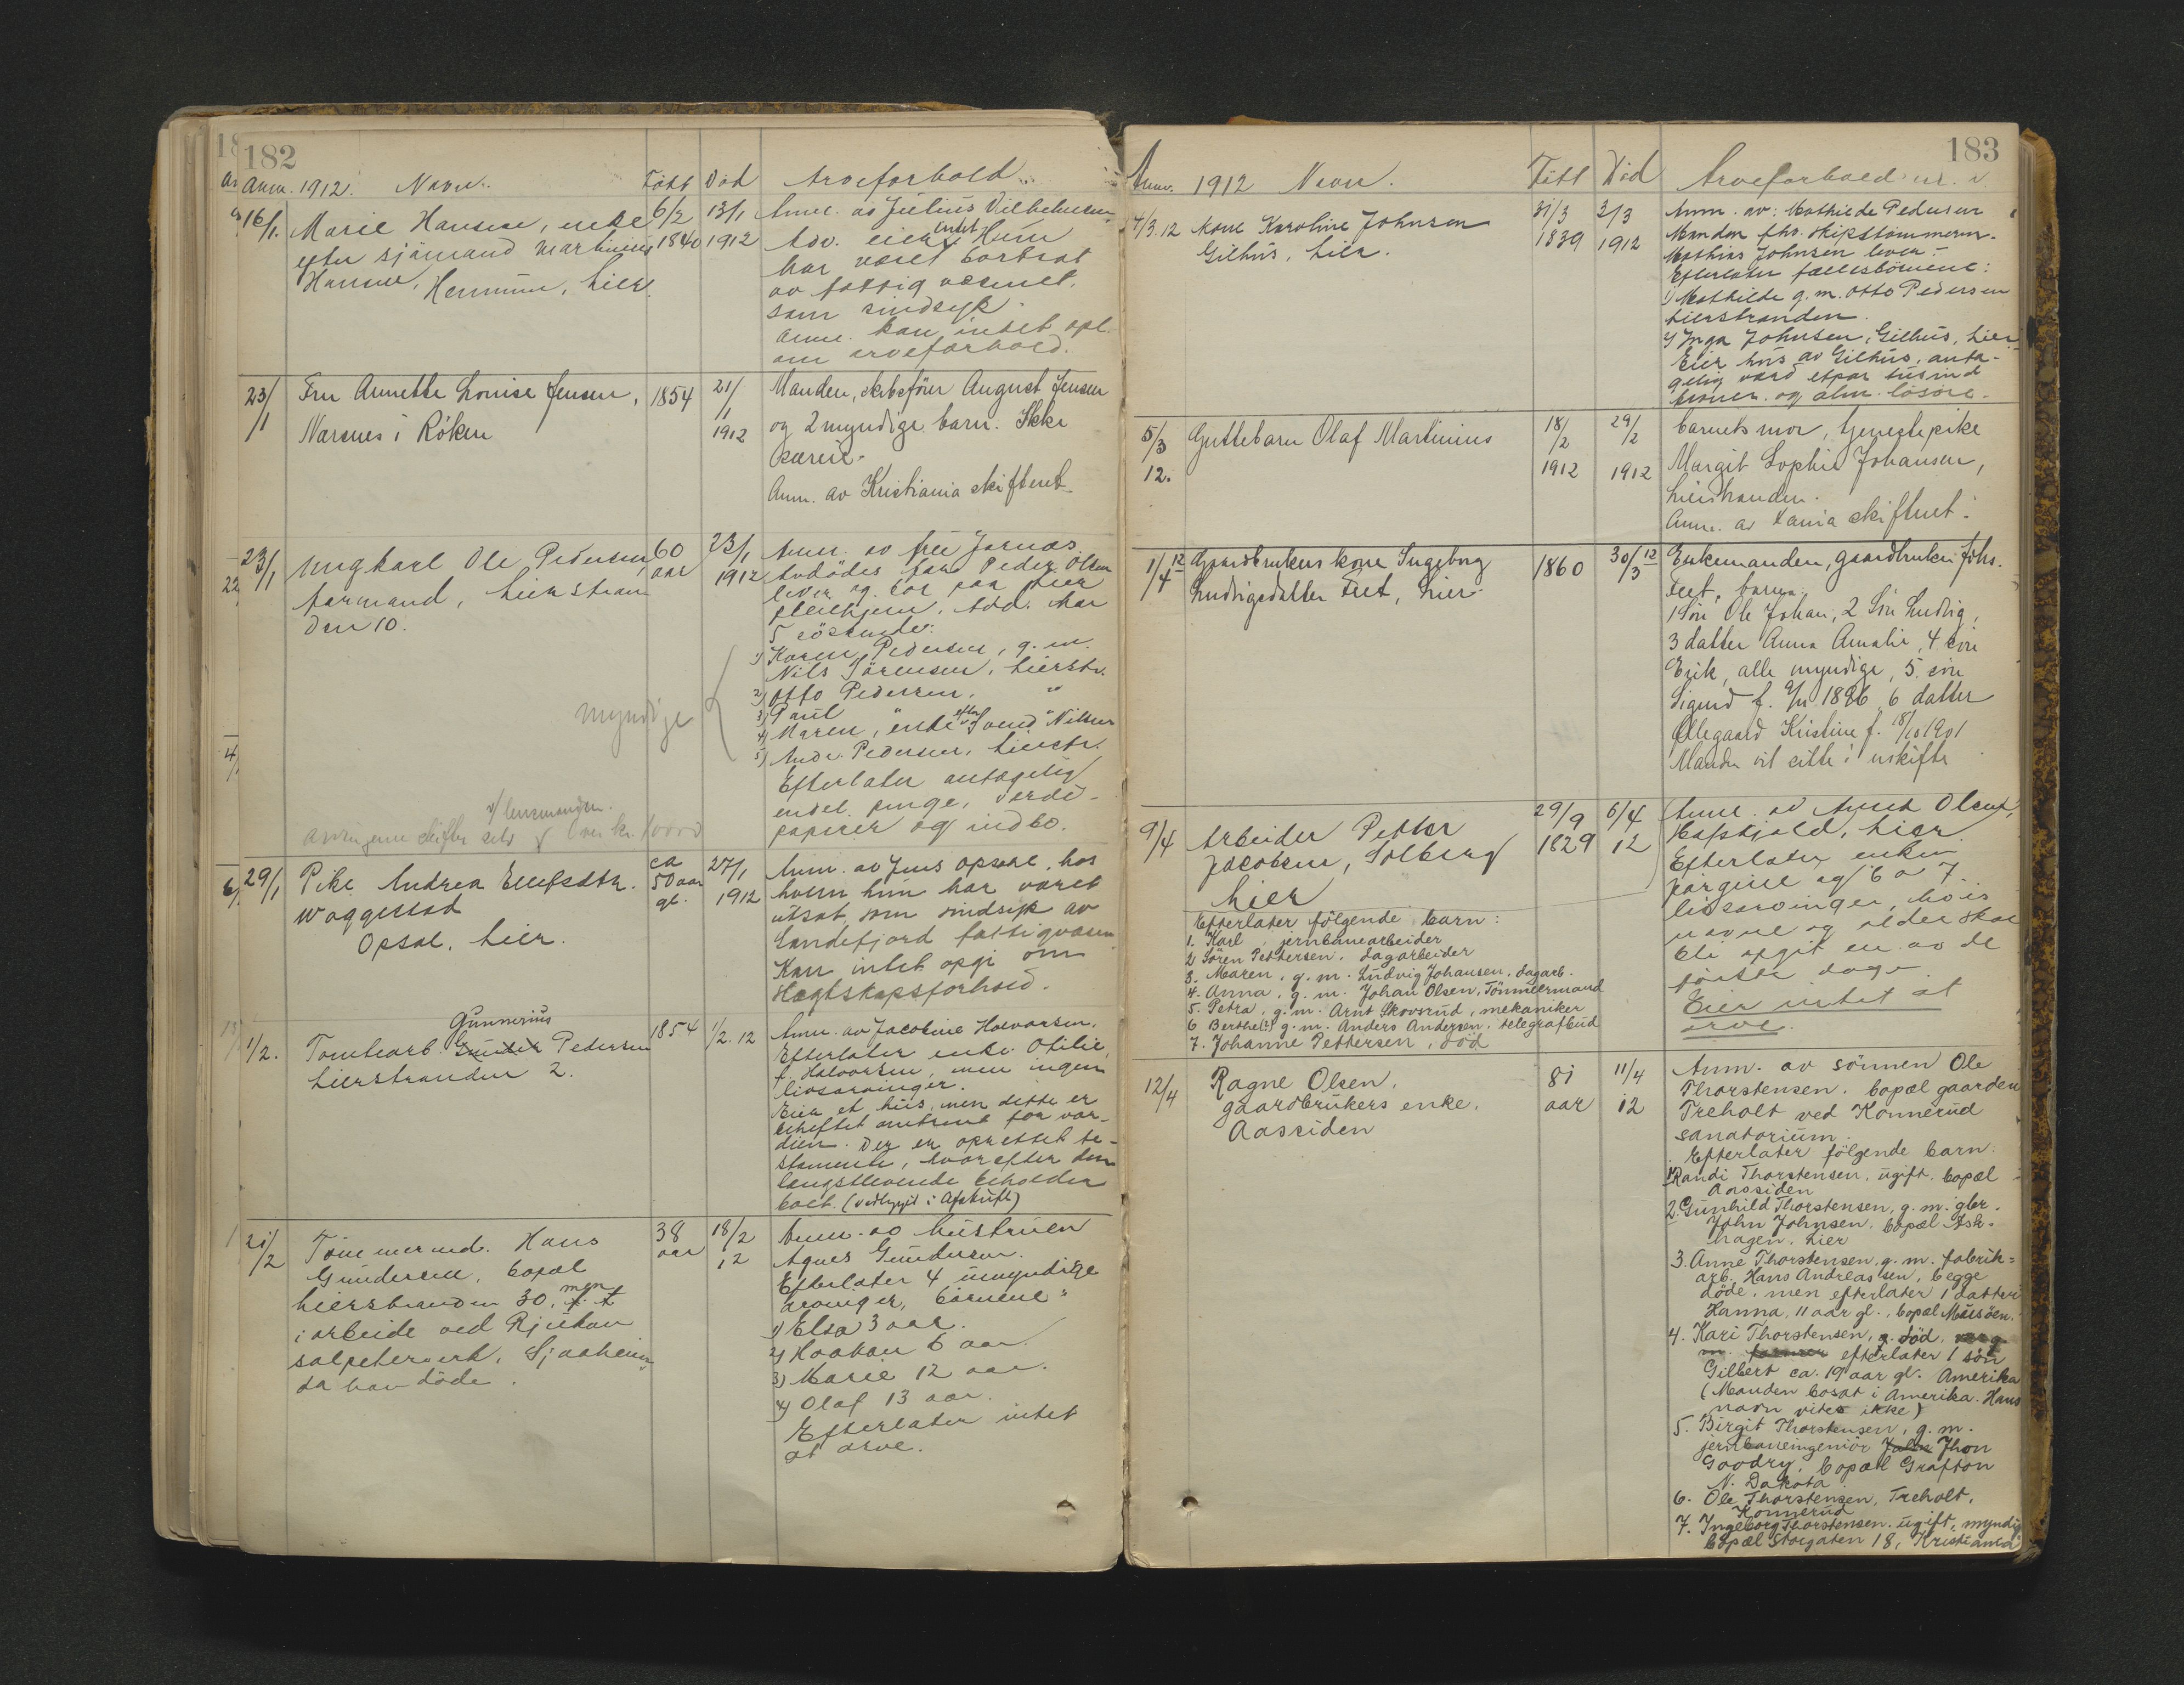 182
Anm. 1912. Navn. Født Død Arveforhold
16/1. Marie Hansen, enke 6/2 1840 13/1 1912
efter sjømand Martinius
Hansen, Hennum, Lier.
Anm. av Julius Vilhelmsen
Adv. eier intet Hun
har været bortsat
av fattigvæsenet,
som sindssyk.
Anm. kan intet opl.
om arveforhold.
23/1 Fru Annette Louise Jensen, 1854 21/1 1912
Nærsnes i Röken
Manden, skibsförer August Jensen
og 2 myndige barn. Ikke
særeie.
Anm. av Kristiania skifteret
23/1 Ungkarl Ole Pedersen, 60 aar 23/1 1912
formand, Lierstran
den 10.
Anm. av frk Jornas
Avdödes far Peder Olsen
lever og bor paa Lier
pleiehjem. Add. har
5 söskende:
1) Karen Pedersen, g. m.
Nils Sörensen, Lierstr.
2) Otto Pedersen, "
3) Paul " "
4) Maren, enke efter Svend Nilsen
5) Andr. Pedersen, Lierstr.
myndige
Efterlater antagelig
endel penge, verdi-
papirer og indbo.
v/ lensmanden.
Arvingerne skifter selv over kr. 10000
29/1 Pike Andrea Ellefsdtr. ca 50 aar gl. 27/1 1912
Waggestad
Opsal, Lier.
Anm. av Jens Opsal, hos
hvem hun har været
utsat som sindsyk av
Sandefjord fattigvæsen
Kan intet opgi om
slegtskapsforhold.
1/2. Tomtearb. Gunnerius Pedersen 1854 1/2. 12
Lierstranden 2.
Anm. av Jacobine Halvorsen.
Efterlater enke Otilie,
f. Halvorsen, men ingen
livsarvinger.
Eier et hus, men dette er
beheftet omtrent for vær-
dien. Der er oprettet te-
stamente, hvorefter den
længstlevende beholder
boet. (vedlagt i Afskrift)
21/2 Tömmermd. Hans 38 aar 18/2 12
Gundersen, bopæl
Lierstranden 30, men
i arbeide ved Rjukan
salpeterverk, Sjaaheim
da han döde.
Anm. av hustruen
Agnes Gundersen.
Efterlater 4 umyndige
arvinger, börnene:
1) Elsa 3 aar.
2) Haakon 6 aar.
3) Marie 12 aar.
4) Olaf 13 aar.
Efterlater intet
at arve.
183
Anm. 1912 Navn. Født Död Arveforhold m. v.
4/3.12 Kone Karoline Johnsen 31/3 1839 3/3 1912
Gilhus, Lier.
Anm. av: Mathilde Pedersen
Manden fhv. skipstömmerm.
Mathias Johnsen lever.
Efterlater fællesbörnene:
1) Mathilde g. m. Otto Pedersen
Lierstranden.
2) Inga Johnsen, Gilhus, Lier
Eier hus av Gilhus, anta-
gelig værd etpar tusind
kroner og alm. lösöre.
5/3 12. Guttebarn Olaf Martinius 18/2 1912 29/2 1912
barnets mor, tjenestepike
Margit Sophie Johansen,
Lierstranden.
Anm. av Kania skifteret.
1/4 12 Gaardbrukers kone Ingeborg 1860 30/3 12
Ludvigsdatter Eret, Lier
Enkemanden, gaardbruker Johs.
Eret, barn:
1 Sön Ole Johan, 2 Sön Ludvig,
3 datter Anna Amalie, 4 sön
Erik, alle myndige, 5. sön
Sigurd f. 1896, 6 datter
Ollegaard Kristine f. 18/10 1901
Manden vil sitte i uskifte
9/4 Arbeider Petter 29/9 1829 6/4 12
Jacobsen, Solberg
Lier
Anm. av Anna Olsen,
Hafskjold, Lier
Efterlater enken
Jörgine og 6 a 7
livsarvinger, hvis
navne og alder skal
bli opgit en av de
förste dage.
Eier intet at
arve.
Efterlater fölgende barn:
1. Karl, jernbanearbeider
2 Sören Pettersen, dagarbeider
3. Maren, g. m. Ludvig Johansen, dagarb.
4. Anna, g. m. Johan Olsen, Tömmermand
5. Petra, g. m. Arnt Skovsrud, mekaniker
6 Berthe(?) g. m. Anders Andersen, telegrafbud
7. Johanne Pettersen, död
12/4 Ragne Olsen, 81 aar 11/4 12
gaardbrukers enke,
Aassiden
Anm. av sönnen Ole
Thorstensen. bopæl gaarden
Treholt ved Konnerud
sanatorium.
Efterlater fölgende barn.
1. Randi Thorstensen, ugift. bopæl
Aassiden
2. Gunhild Thorstensen, g. m. gbr.
John Johnsen. bopæl Ask-
hagen, Lier
3. Anne Thorstensen, g. m. fabrik-
arb. Hans Andreassen, begge
döde, men efterlater 1 datter
Hanna, 11 aar gl., bopæl Mussöen.
4. Kari Thorstensen, g. död,
efterlater 1 sön
Gilbert ca. 19 aar gl. Amerika
(Manden bosat i Amerika. Hans
navn vites ikke)
5. Birgit Thorstensen, g. m.
jernbaneingeniör John Jhon
Goodry, bopæl Grafton
N. Dakota
6. Ole Thorstensen, Treholt,
Konnerud
7. Ingeborg Thorstensen. ugift, myndig
bopæl Storgaten 18, Kristiania